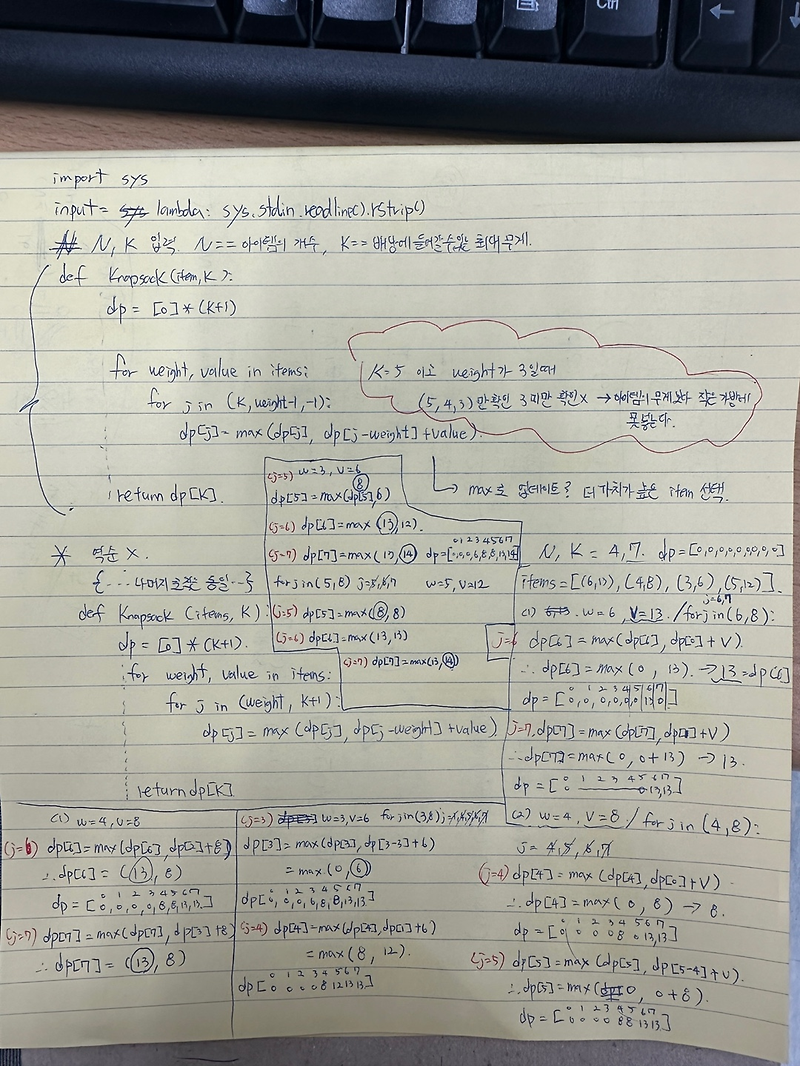 Ctrl
import sys
input = sys lambda: sys.stdin.readline().rstrip()
N N, K 입력. N == 아이템의 개수, K == 배낭에 들어갈 수 있는 최대 무게.
def Knapsack(item, K):
dp = [0] * (K+1)
for weight, value in items:
for j in (K, weight-1, -1):
dp[j] = max(dp[j], dp[j-weight] + value)
return dp[K].
K=5 이고 weight가 3일때
(5, 4, 3)만 확인 3 미만 확인X → 아이템의 무게보다 작은 가방에
못넣는다.
→ max로 업데이트? 더 가치가 높은 item 선택.
* 역순 X.
{ --- 나머지 코드 동일 -- }
def Knapsack(items, K):
dp = [0] * (K+1).
for weight, value in items:
for j in (weight, K+1):
dp[j] = max(dp[j], dp[j-weight] + value)
return dp[K]
N, K = 4, 7. dp = [0,0,0,0,0,0,0,0]
items = [(6,13), (4,8), (3,6), (5,12)].
(1) w = 6, V = 13. / for j in (6, 8):
j=6,7
j=6 dp[6] = max(dp[6], dp[0] + V)
∴ dp[6] = max(0, 13). → 13 = dp[6]
0 1 2 3 4 5 6 7
dp = [0, 0, 0, 0, 0, 0, 13, 0]
j=7, dp[7] = max(dp[7], dp[1] + V)
∴ dp[7] = max(0, 0+13) → 13.
0 1 2 3 4 5 6 7
dp = [0 0 13,13]
(2) w = 4, V = 8. / for j in (4, 8):
j = 4, 5, 6, 7
(j=4) dp[4] = max(dp[4], dp[0] + V)
∴ dp[4] = max(0, 8) → 8.
0 1 2 3 4 5 6 7
dp = [0 0 0 0 8 0 13,13]
(j=5) dp[5] = max(dp[5], dp[5-4] + v).
∴ dp[5] = max(0, 0+8).
0 1 2 3 4 5 6 7
dp = [0 0 0 0 8 8 13 13]
(1) w = 4, v = 8
(j=6) dp[6] = max(dp[6], dp[2] + 8)
∴ dp[6] = (13, 8)
0 1 2 3 4 5 6 7
dp = [0, 0, 0, 0, 8, 8, 13, 13]
(j=7) dp[7] = max(dp[7], dp[3] + 8)
∴ dp[7] = (13, 8)
(j=3) w=3, v=6 for j in (3,8) j=3,4,5,6,7
dp[3] = max(dp[3], dp[3-3] + 6)
= max(0, 6)
0 1 2 3 4 5 6 7
dp[0, 0, 0, 6, 8, 8, 13, 13]
(j=4) dp[4] = max(dp[4], dp[1] + 6)
= max(8, 12).
0 1 2 3 4 5 6 7
dp[0 0 0 0 8 12 13 13]
(j=5) w=3, v=6
8
dp[5] = max(dp[5], 6)
(j=6) dp[6] = max(13, 12).
(j=7) dp[7] = max(13, 14)
0 1 2 3 4 5 6 7
dp = [0,0,0,6,8,8,13,14]
for j in (5, 8) j=5,6,7 w=5, v=12
(j=5) dp[5] = max(8, 8)
(j=6) dp[6] = max(13, 13)
(j=7) dp[7] = max(13, 14)